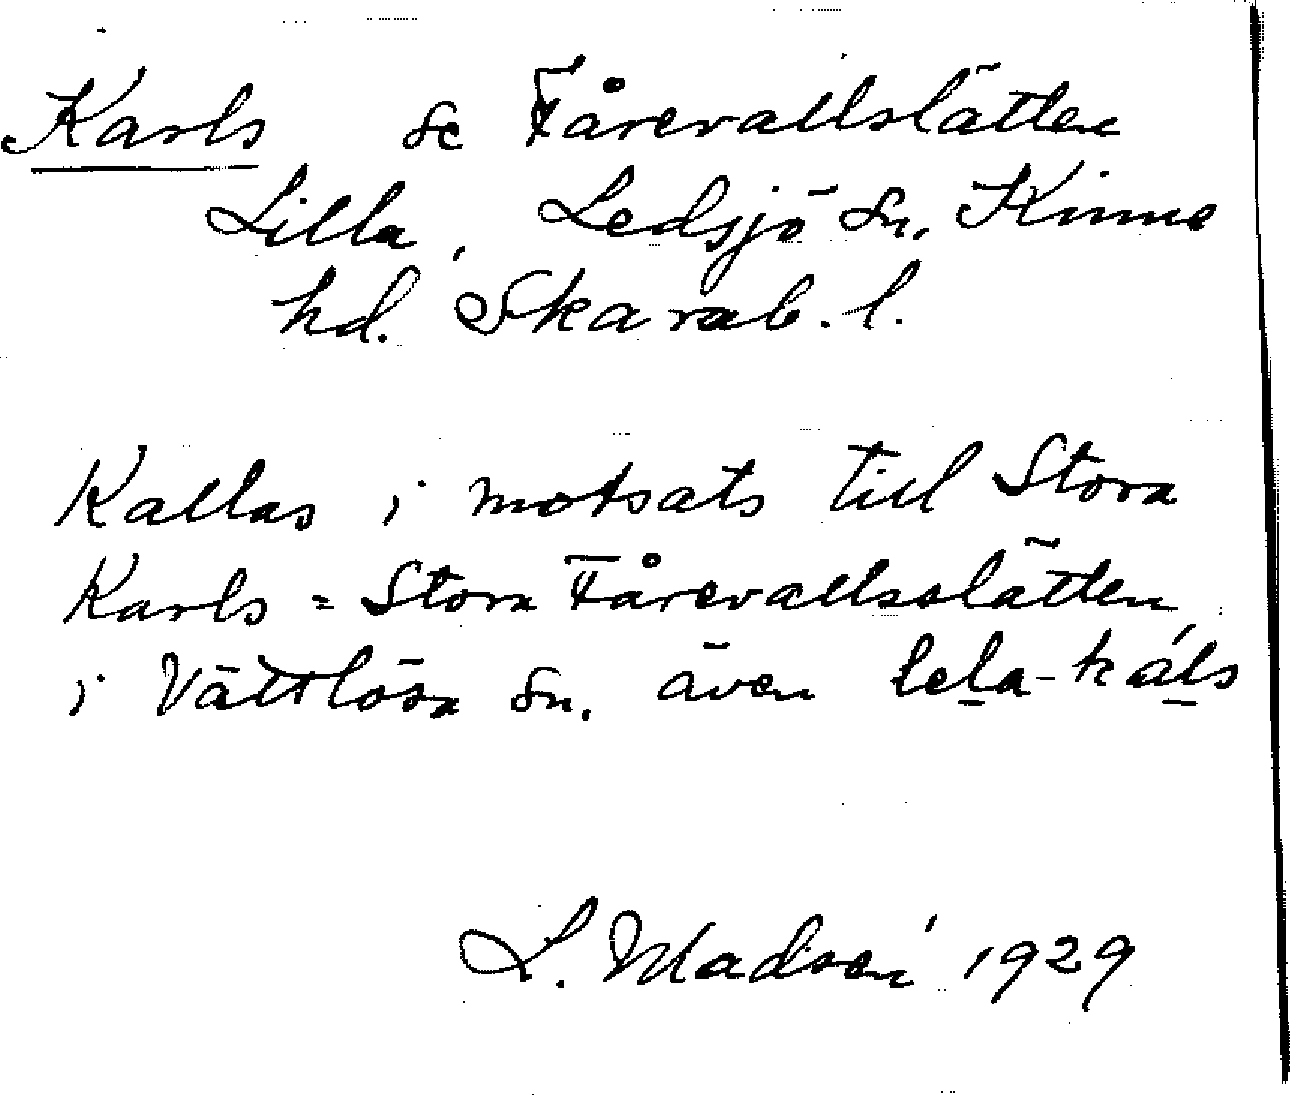 Karls se Fårevallslätten
Lilla, Ledsjö sn, Kinne
hd. Skarab. l.
Kallas i motsats till Stora
Karls = Stora Fårevallsslätten,
i Vättlösa sn. även lela-káls
L. Madsén 1929